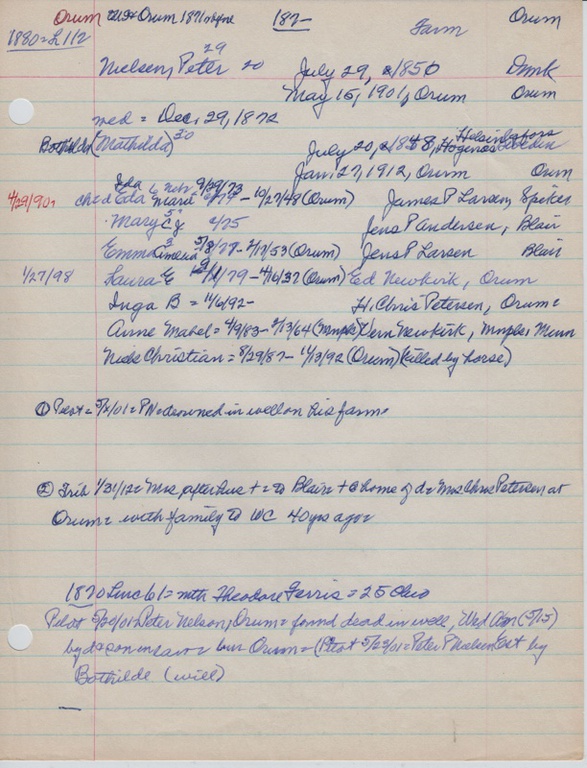 Orum 187- Farm Orum
1880 = L 112
29
Nielsen, Peter 20 July 29, 1850 Dmk
May 15, 1901, Orum Orum
wed = Dec. 29, 1872
Bothilda (Mathilda) 30 July 20, 1848, Helsingborg
Jan 27, 1912, Orum Orum
4/29/901 Eda Marie - 10/27/48 (Orum) James P Larsen, Spiker
Mary C 2/75 Jens P Andersen, Blair
Emma 5/8/77 - 2/17/53 (Orum) Jens P Larsen Blair
1/27/98 Laura E /79 - 4/6/37 (Orum) Ed Newkirk, Orum
Inga B = 11/6/92 - H. Chris Petersen, Orum =
Anne Mabel = 4/9/83 - 2/13/64 (Mnpls) Vern Newkirk, Mnpls, Minn
Neds Christian = 8/29/87 - 11/13/92 (Orum) (killed by horse)
① Pilot = 5/ /01 = P N drowned in well on his farm =
② Trib 1/31/12 = Mrs after hus + = to Blair = + @ home of d = Mrs Chris Petersen at
Orum = with family to WC 40 yrs ago =
1870 Linc 61 = with Theodore Ferris = 25 Ohio
Pilot 5/22/01 Peter Nelson, Orum = found dead in well, Wed (5/15)
by Orum = (Pilot 5/29/01 = Peter P Nielsen Est by
Bothilde (will)